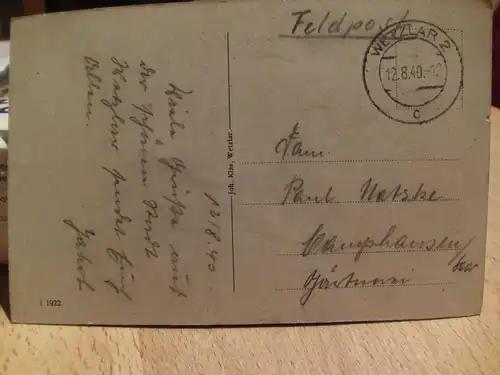 Feldpost
WETZLAR 2
12.8.40.
c
12/8.40.
Viele Grüße aus
der schönen Stadt
Wetzlar sendet Euch
Allen
Fam.
Paul Natzke
Gärtnerei
Joh. Klee, Wetzlar.
I 1922